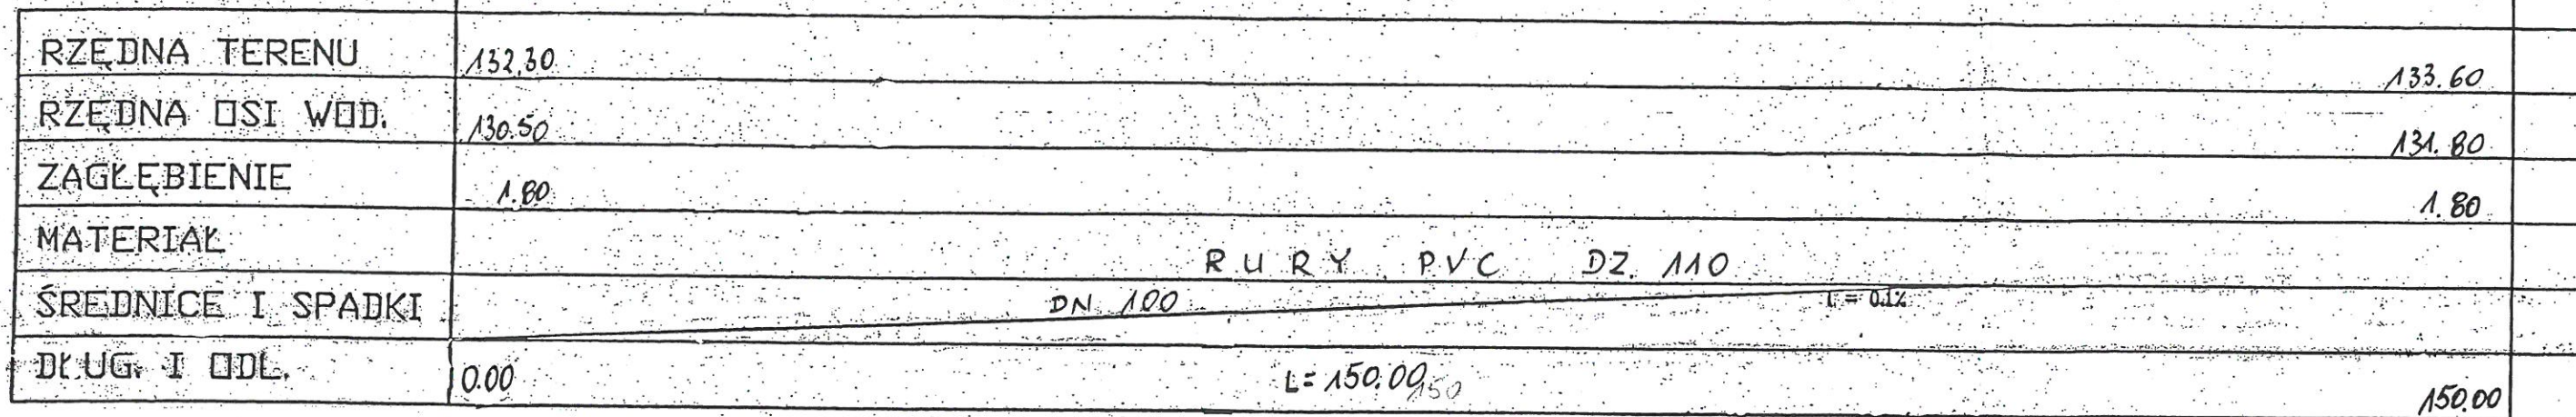 RZĘDNA TERENU 132,30 133.60
RZĘDNA OSI WOD. 130.50 131.80
ZAGŁĘBIENIE 1.80 1.80
MATERIAŁ RURY PVC DZ. 110
ŚREDNICE I SPADKI DN 100 i = 0.1%
DŁUG. I ODL. 0.00 L= 150.00 150 150.00